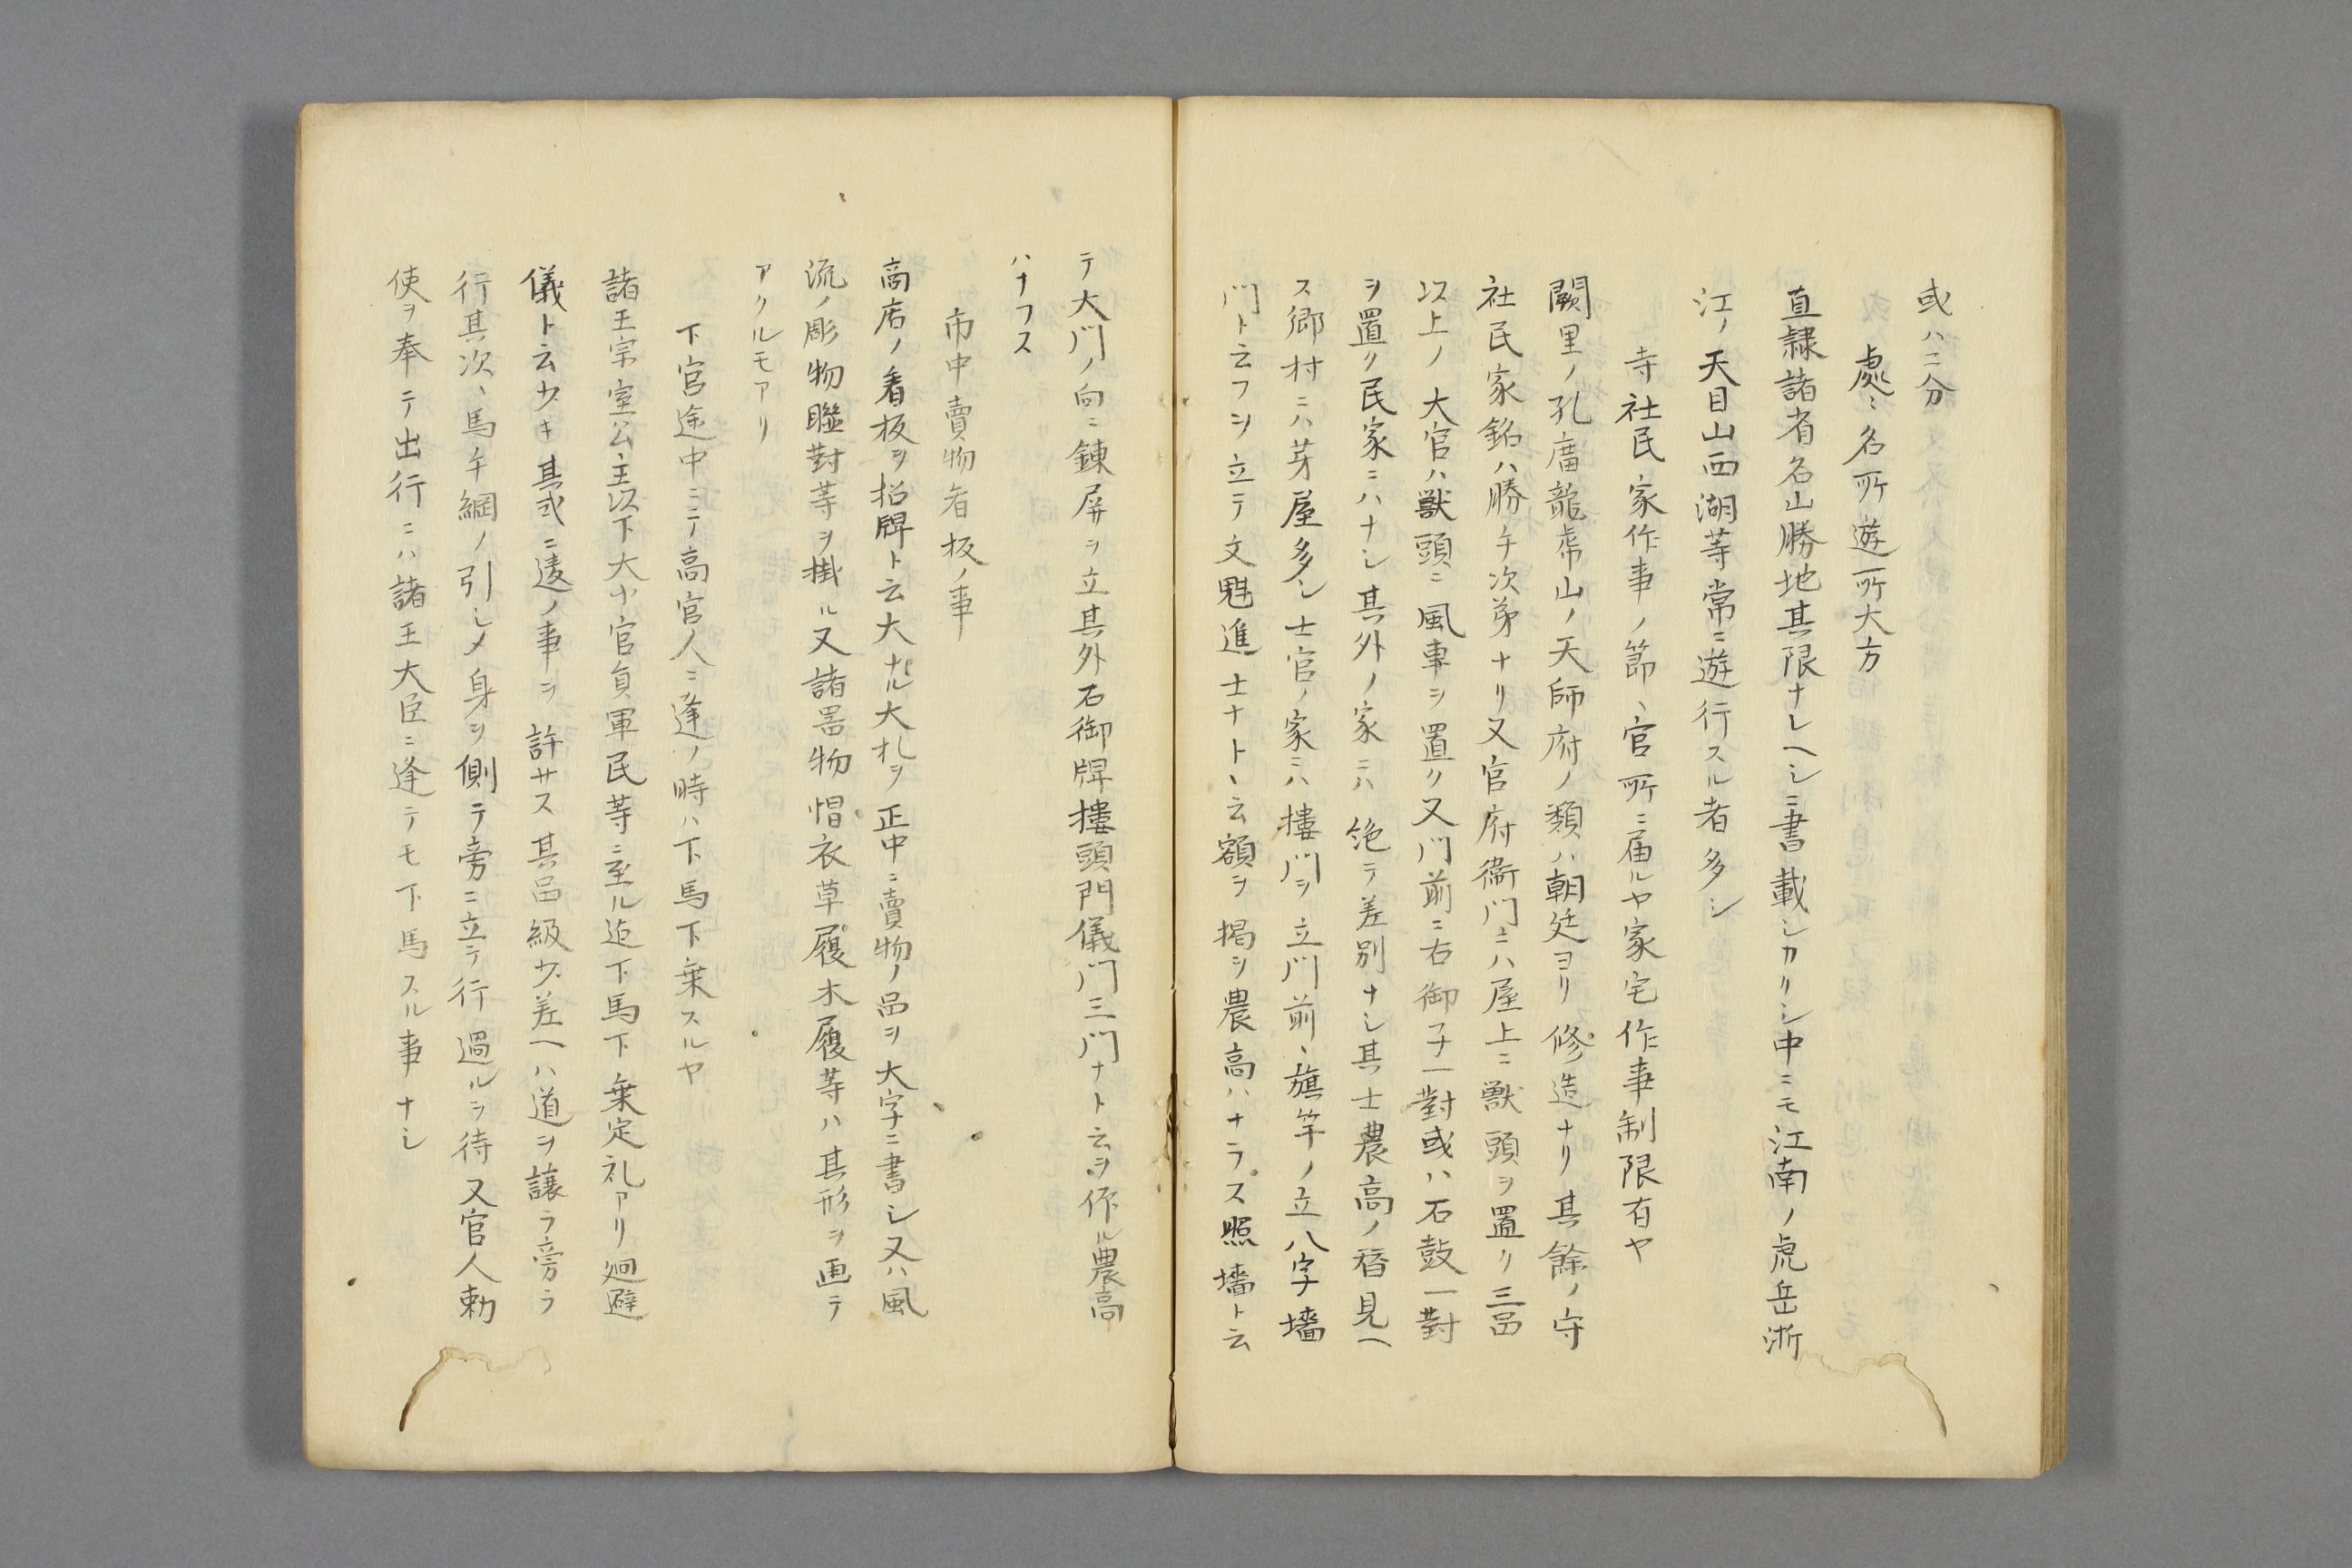 或ハ二分
處〻名所遊所大方
直隷諸省名山勝地其限ナレヘシニ書載シカリシ中ニモ江南ノ虎岳浙
江ノ天目山西湖等常ニ遊行スル者多シ
寺社民家作事ノ節ヽ官所ニ届ルヤ家宅作事制限有ヤ
闕里ノ孔庿龍虎山ノ天師府ノ類ハ朝廷ヨリ修造ナリ其餘ノ寺
社民家銘ハ勝手次第ナリ又官府衙門ニハ屋上ニ獣頭ヲ置リ三品
以上ノ大官ハ獣頭ニ風車ヲ置ク又門前ニ石御子一對或ハ石鼓一對
ヲ置ク民家ニハナシ其外ノ家ニハ絶テ差別ナシ其士農高ノ替見ヘ
ス郷村ニハ芽屋多シ士官ノ家ニハ樓門ヲ立門前ヽ旗竿ノ立八字墻
門ト云フヲ立テ文魁進士ナトヽ云額ヲ掲シ農高ハナラス照墻ト云
テ大門ノ向ニ錬屏ヲ立其外石御牌摟頭門儀門三門ナト云ヲ作ル農高
ハナフス
市中賣物看板ノ事
高店ノ看板ヲ招牌ト云大ナル大札ヲ正中ニ賣物ノ品ヲ大字ニ書シ又ハ風
流ノ彫物聯對等ヲ掛ル又諸噐物帽衣草履木履等ハ其形ヲ画テ
アクルモアリ
下官途中ニテ高官人ニ逢ノ時ハ下馬下乗スルヤ
諸王宗室公主以下大小官負軍民等ニ至ル迠下馬下乗定礼アリ廻避
儀ト云少キ其或ニ逺ノ事ヲ許サス其品級少差ヘハ道ヲ譲ラ旁ラ
行其次ヽ馬ヲ綱ノ引シメ身ヲ側テ旁ニ立テ行過ルヲ待又官人勅
使ヲ奉テ出行ニハ諸王大臣ニ逢テモ下馬スル事ナシ